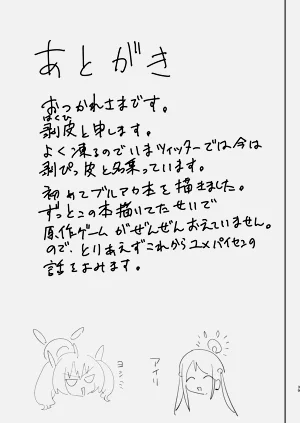 あとがき
おつかれさまです。
はくひ
剥皮と申します。
よく凍るのでいまツィッターでは今は
剥ぴっ皮と名乗っています。
初めてブルアカ本を描きました。
ずっとこの本描いてたせいで
原作ゲームがぜんぜんおえていません。
ので、とりあえずこれからユメパイセンの
話をよみます。
ヨシミ
アイリ